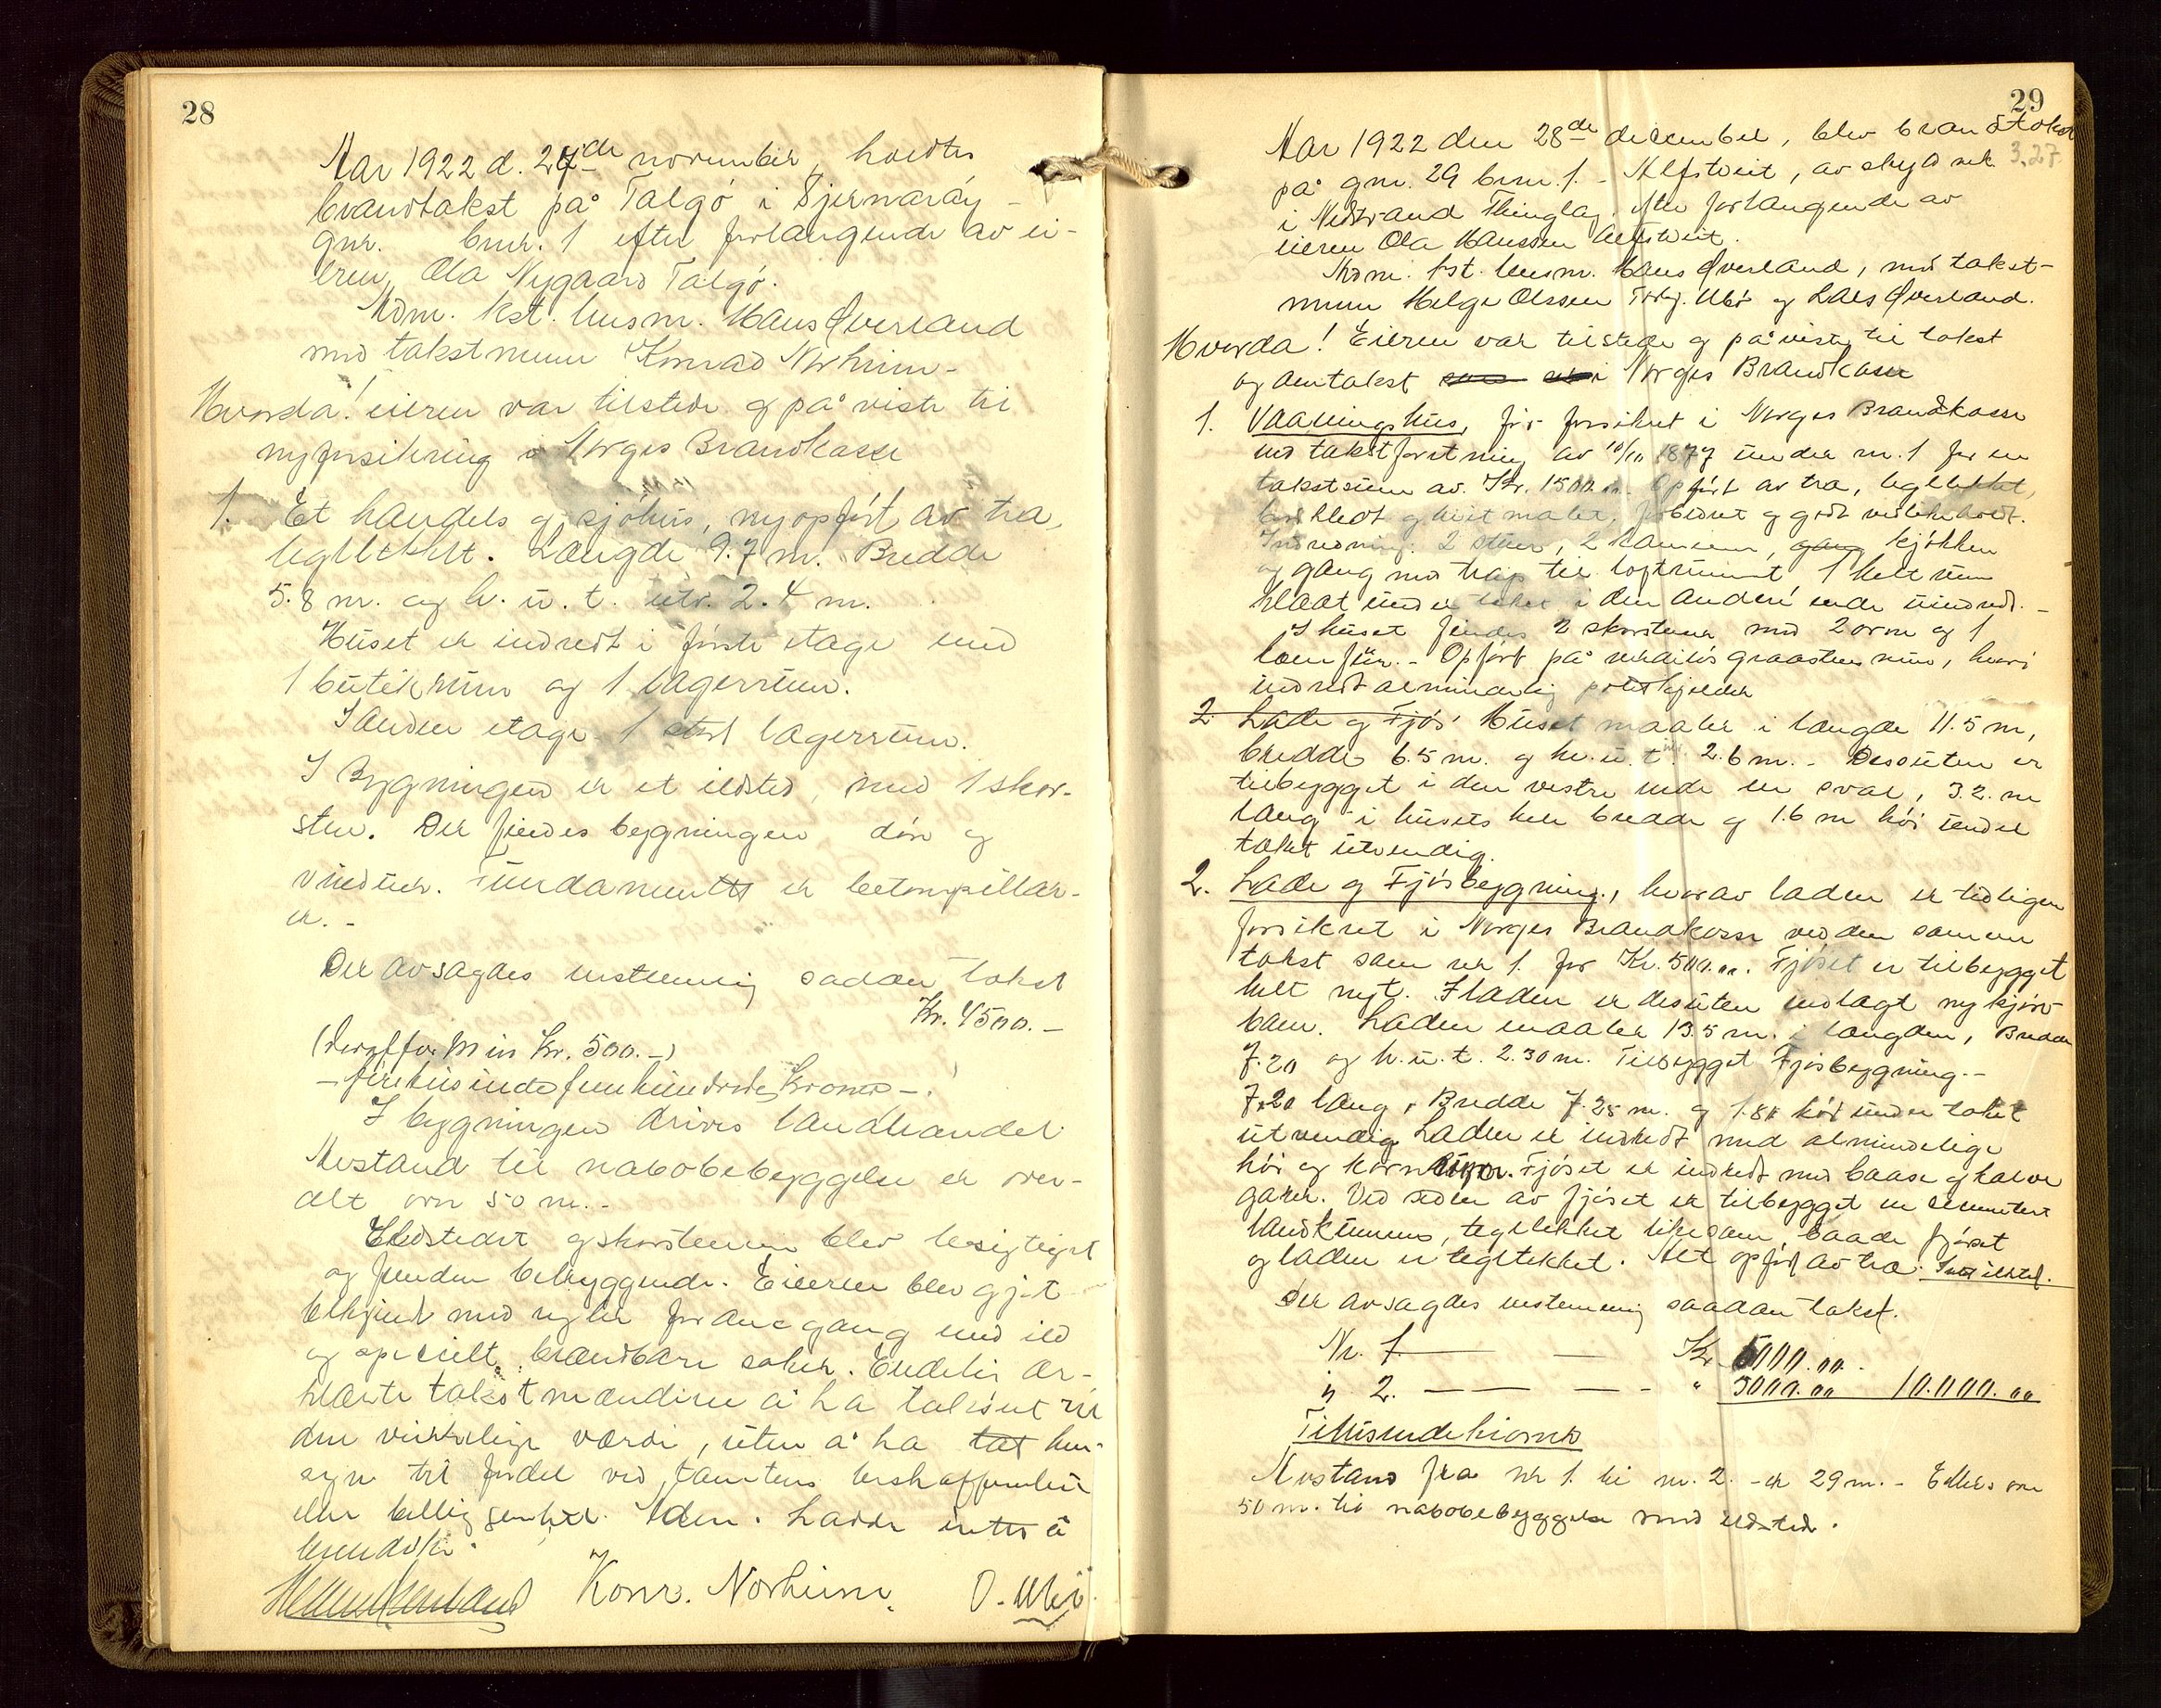 28
Aar 1922 d. 24de november, holdtes
brandtakst på Talgö i Sjernaröy -
gnr. bnr. 1 efter forlangende av ei-
eren, Ola Nygaard Talgö.
Adm. kst. lensm. Hans Øverland
med takstmenn Konrad Norheim -
Hvorda! eieren var tilstede og påviste til
nyforsikring i Norges Brandkasse
1. Et handels og sjöhus, nyopfört av træ,
tegltekket. Længde 9.7 m. Bredde
5.8 m. og h. u. t. utv. 2.4 m.
Huset er indredt i förste etage med
1 butikrum og 1 lagerrum.
I anden etage 1 stort lagerrum.
I Bygningen er et ildsted, med 1 skor-
sten. Der findes bygningen dör og
vinduer. Fundamentet er betonpillar-
er. -
Der avsagdes enstemmig sadan takst
Kr. 4500.-
(Kr. 500.-)
- firetusindefemhundrede Kroner -.
I bygningen drives landhandel.
Avstand til nabobebyggelse er over-
alt over 50 m. -
Ildstedet og skorstenen blev besigtiget
og funden betryggende. Eieren blev gjort
bekjent med regler for omgang med ild
og specielt brændbare saker. Endelig er-
klærte takstmændene å ha taksert til
den virkelige værdi, uten å ha tat hen-
syn til fordel ved tomtens beskaffenhet
eller beliggenhet. Iden. hadde intet å
bemerke.
Hans Øverland Konr. Norheim. O. Ubö.
29
Aar 1922 den 28de december, blev brandtakst
3.27
på gnr. 29 bnr. 1. - Alfstveit, av skyld mk.
i Nedstrand Thinglag. Efter forlangende av
eieren Ola Hanssen Alfstveit.
Adm. kst. lensm. Hans Øverland, med takst-
menn Helge Olssen Ubö og Lars Øverland.
Hvorda! Eieren var tilstede og påviste til takst
og omtakst i Norges Brandkasse
1. Vaaningshus, för forsikret i Norges Brandkasse
ved takstforretning av 10/11 1877 under nr. 1 for en
takstsum av. Kr. 1500.00. Opfört av træ, tegltekket,
bordklædt og hvitmalet, forbedret og godt vedlikeholdt.
Indredning: 2 stuer, 2 kammer, gang kjökken
og gang med trap til loftrummet 1 helt rum
klaat under taket i den anden ende uindredt. -
I huset findes 2 skorstener med 2 ovne og 1
komfür. - Opfört på graastensmur, hvori
indredt almindelig potetkjelder
2. Lade og Fjös. Huset maaler i længde 11.5 m,
bredde 6.5 m. og h. u. t. 2.6 m. - Desuten er
tilbygget i den vestre ende en sval, 3.2. m
lang i husets hele bredde og 1.6 m höi under
taket utvendig.
2. Lade og Fjösbygning, hvorav laden er tidligere
forsikret i Norges Brandkasse ved den samme
takst som nr 1. for Kr. 500.00. Fjöset er tilbygget
helt nyt. I laden er desuten indlagt ny kjöre-
bane. Laden maaler 13.5 m. i længden, Bredde
7.20 og h. u. t. 2.30 m. Tilbygget Fjösbygning. -
7.20 lang, Bredde 7.25 m. og 1.80 höi under taket
utvendig. Laden er indredt med almindelige
höi og kornrum. Fjöset er indredt med baase og kalve
garer. Ved siden av fjöset er tilbygget en cementert
landkummer, tegltekket likesom, baade fjöset
og laden er tegltekket. Alt opfört av træ. Intet ildsted.
Der avsagdes enstemmig saadan takst.
Nr. 1. — — Kr. 5000.00.
" 2. — — - " 5000.00 10.000.00
Titusindekroner
Avstand fra nr 1. til nr. 2. - er 29 m. - Ellers over
50 m. til nabobebyggelse med ildsted.